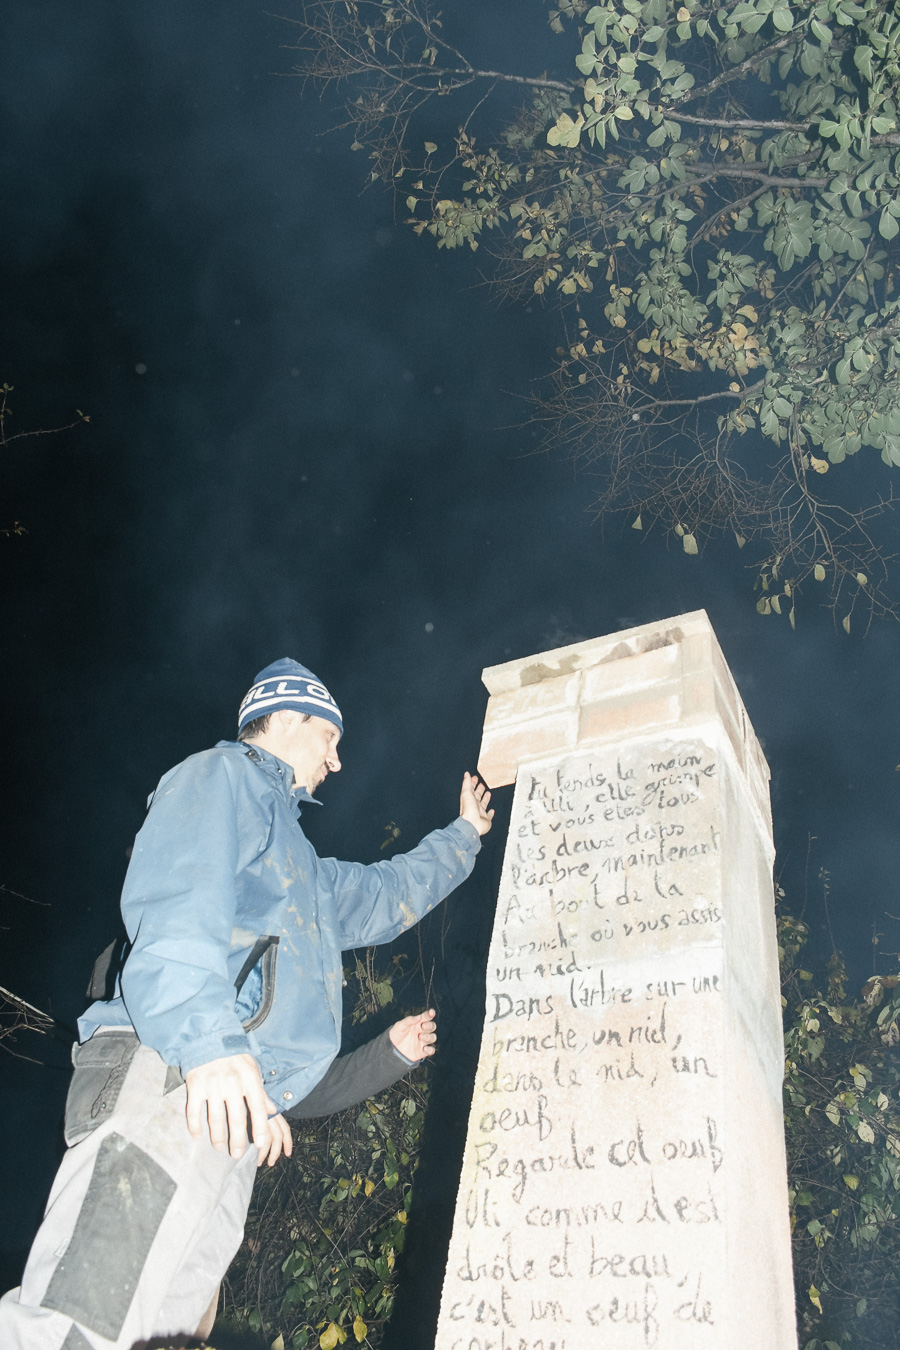 LLO
Tu tends la main
à Uli, elle grimpe
et vous êtes tous
les deux dans
l'arbre, maintenant
Au bout de la
branche où vous assis
un nid.
Dans l'arbre sur une
branche, un nid,
dans le nid, un
oeuf.
Regarde cet oeuf
Uli comme il est
drôle et beau,
c'est un oeuf de
corbeau